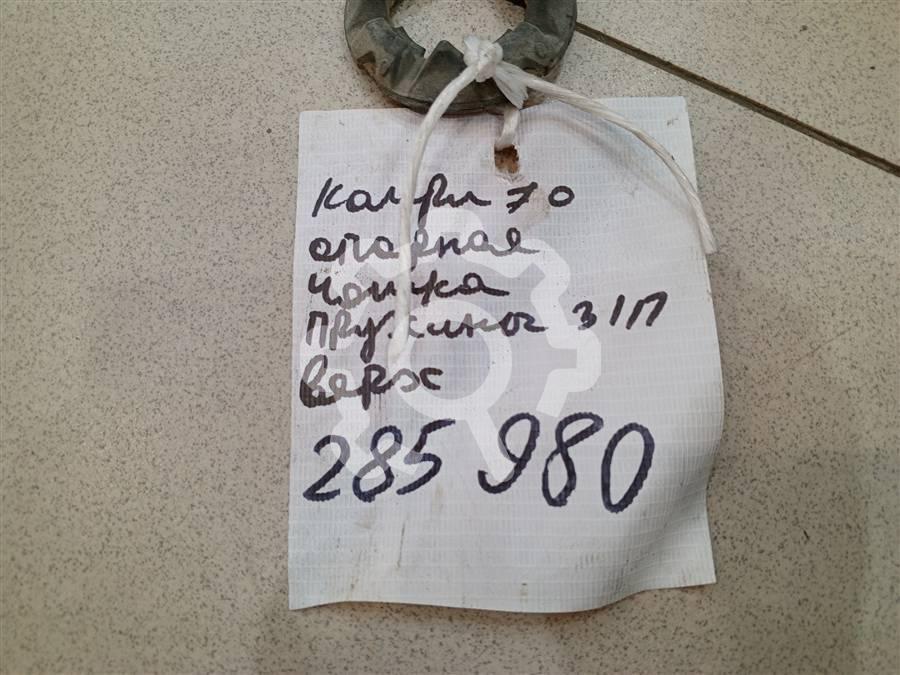 Камри 70
опорная
чашка
пружины з/п
верх
285 980